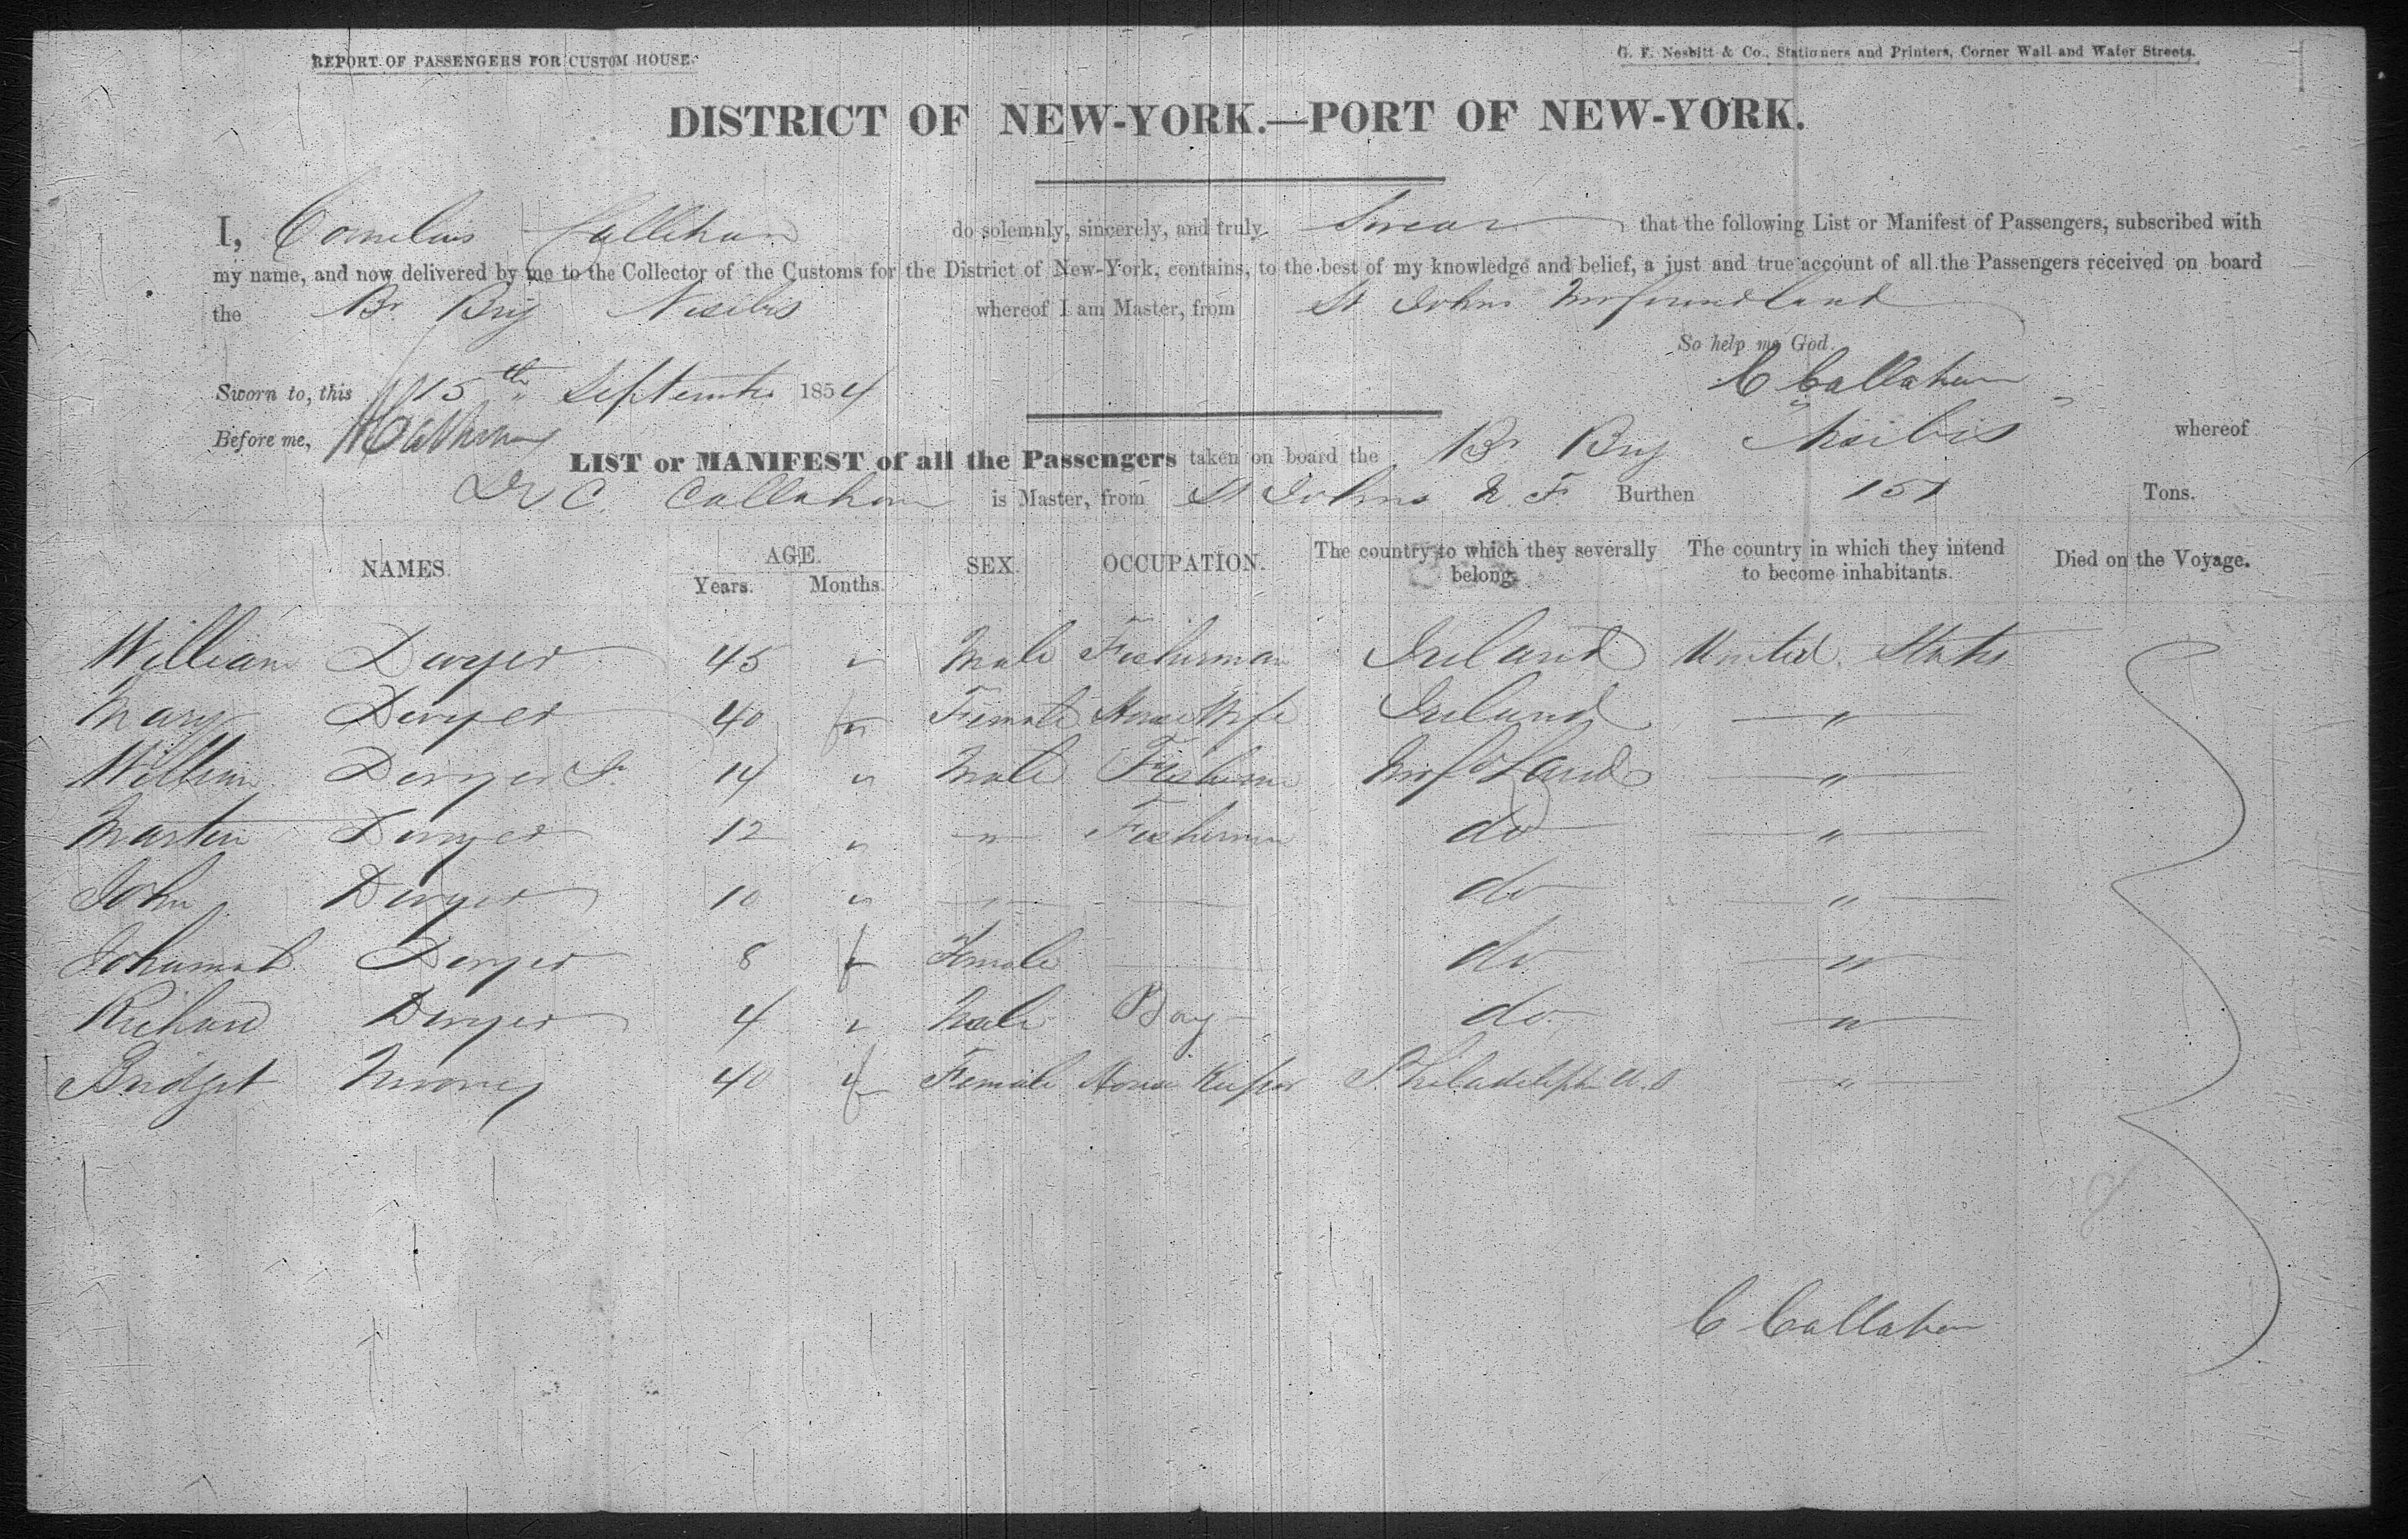 REPORT OF PASSENGERS FOR CUSTOM HOUSE.
G. F. Nesbitt & Co., Stationers and Printers, Corner Wall and Water Streets.
DISTRICT OF NEW-YORK.—PORT OF NEW-YORK.
I, Cornelius Callihan do solemnly, sincerely, and truly Swear that the following List or Manifest of Passengers, subscribed with
my name, and now delivered by me to the Collector of the Customs for the District of New-York, contains, to the best of my knowledge and belief, a just and true account of all the Passengers received on board
the Br Brig Nisibis whereof I am Master, from St Johns Newfoundland
So help me God.
Sworn to, this 15th September 1854 C Callahan
Before me,
LIST or MANIFEST of all the Passengers taken on board the Br Brig Nisibis whereof
C. Callahan is Master, from St Johns N. F Burthen 151 Tons.
NAMES. AGE. SEX. OCCUPATION. The country to which they severally belong. The country in which they intend to become inhabitants. Died on the Voyage.
Years. Months.
William Dwyer 45 " Male Fisherman Ireland United States
Mary Dwyer 40 Female House Wife Ireland "
William Dwyer Jr 14 " Male Fisherman Nwfdland "
Martin Dwyer 12 " " Fisherman do "
John Dwyer 10 " " — do "
Dwyer 8 f Female — do "
Richard Dwyer 4 " Male Boy do "
Bridget Mooney 40 f Female House Keeper Philadelphia U.S "
8
C Callahan